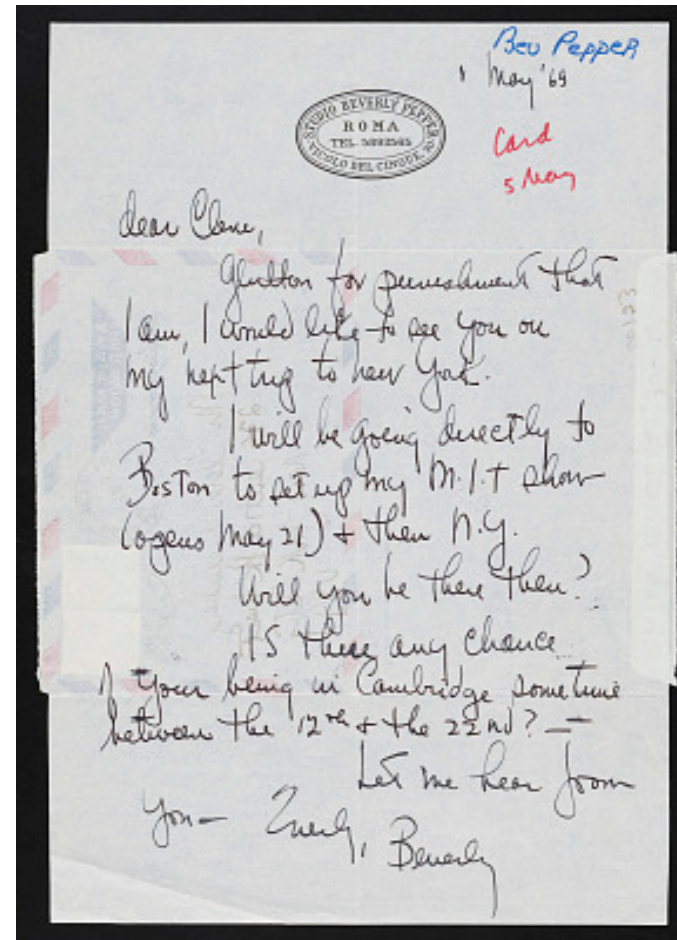 Bev Pepper
1 May '69
STUDIO BEVERLY PEPPER
ROMA
TEL. 5892565
VICOLO DEL CINQUE, 30
Card
5 May
dear Clem,
Glutton for punishment that
I am, I would like to see you on
my next trip to New York.
I will be going directly to
Boston to set up my M.I.T show
(opens May 21) + then N.Y.
Will you be there then?
IS there any chance
of your being in Cambridge sometime
between the 12th & the 22nd? —
Let me hear from
you —
Beverly